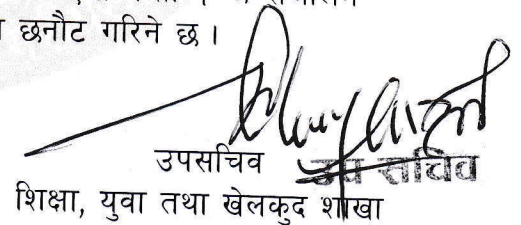 छनौट गरिने छ ।
उपसचिव उप सचिव
शिक्षा, युवा तथा खेलकुद शाखा